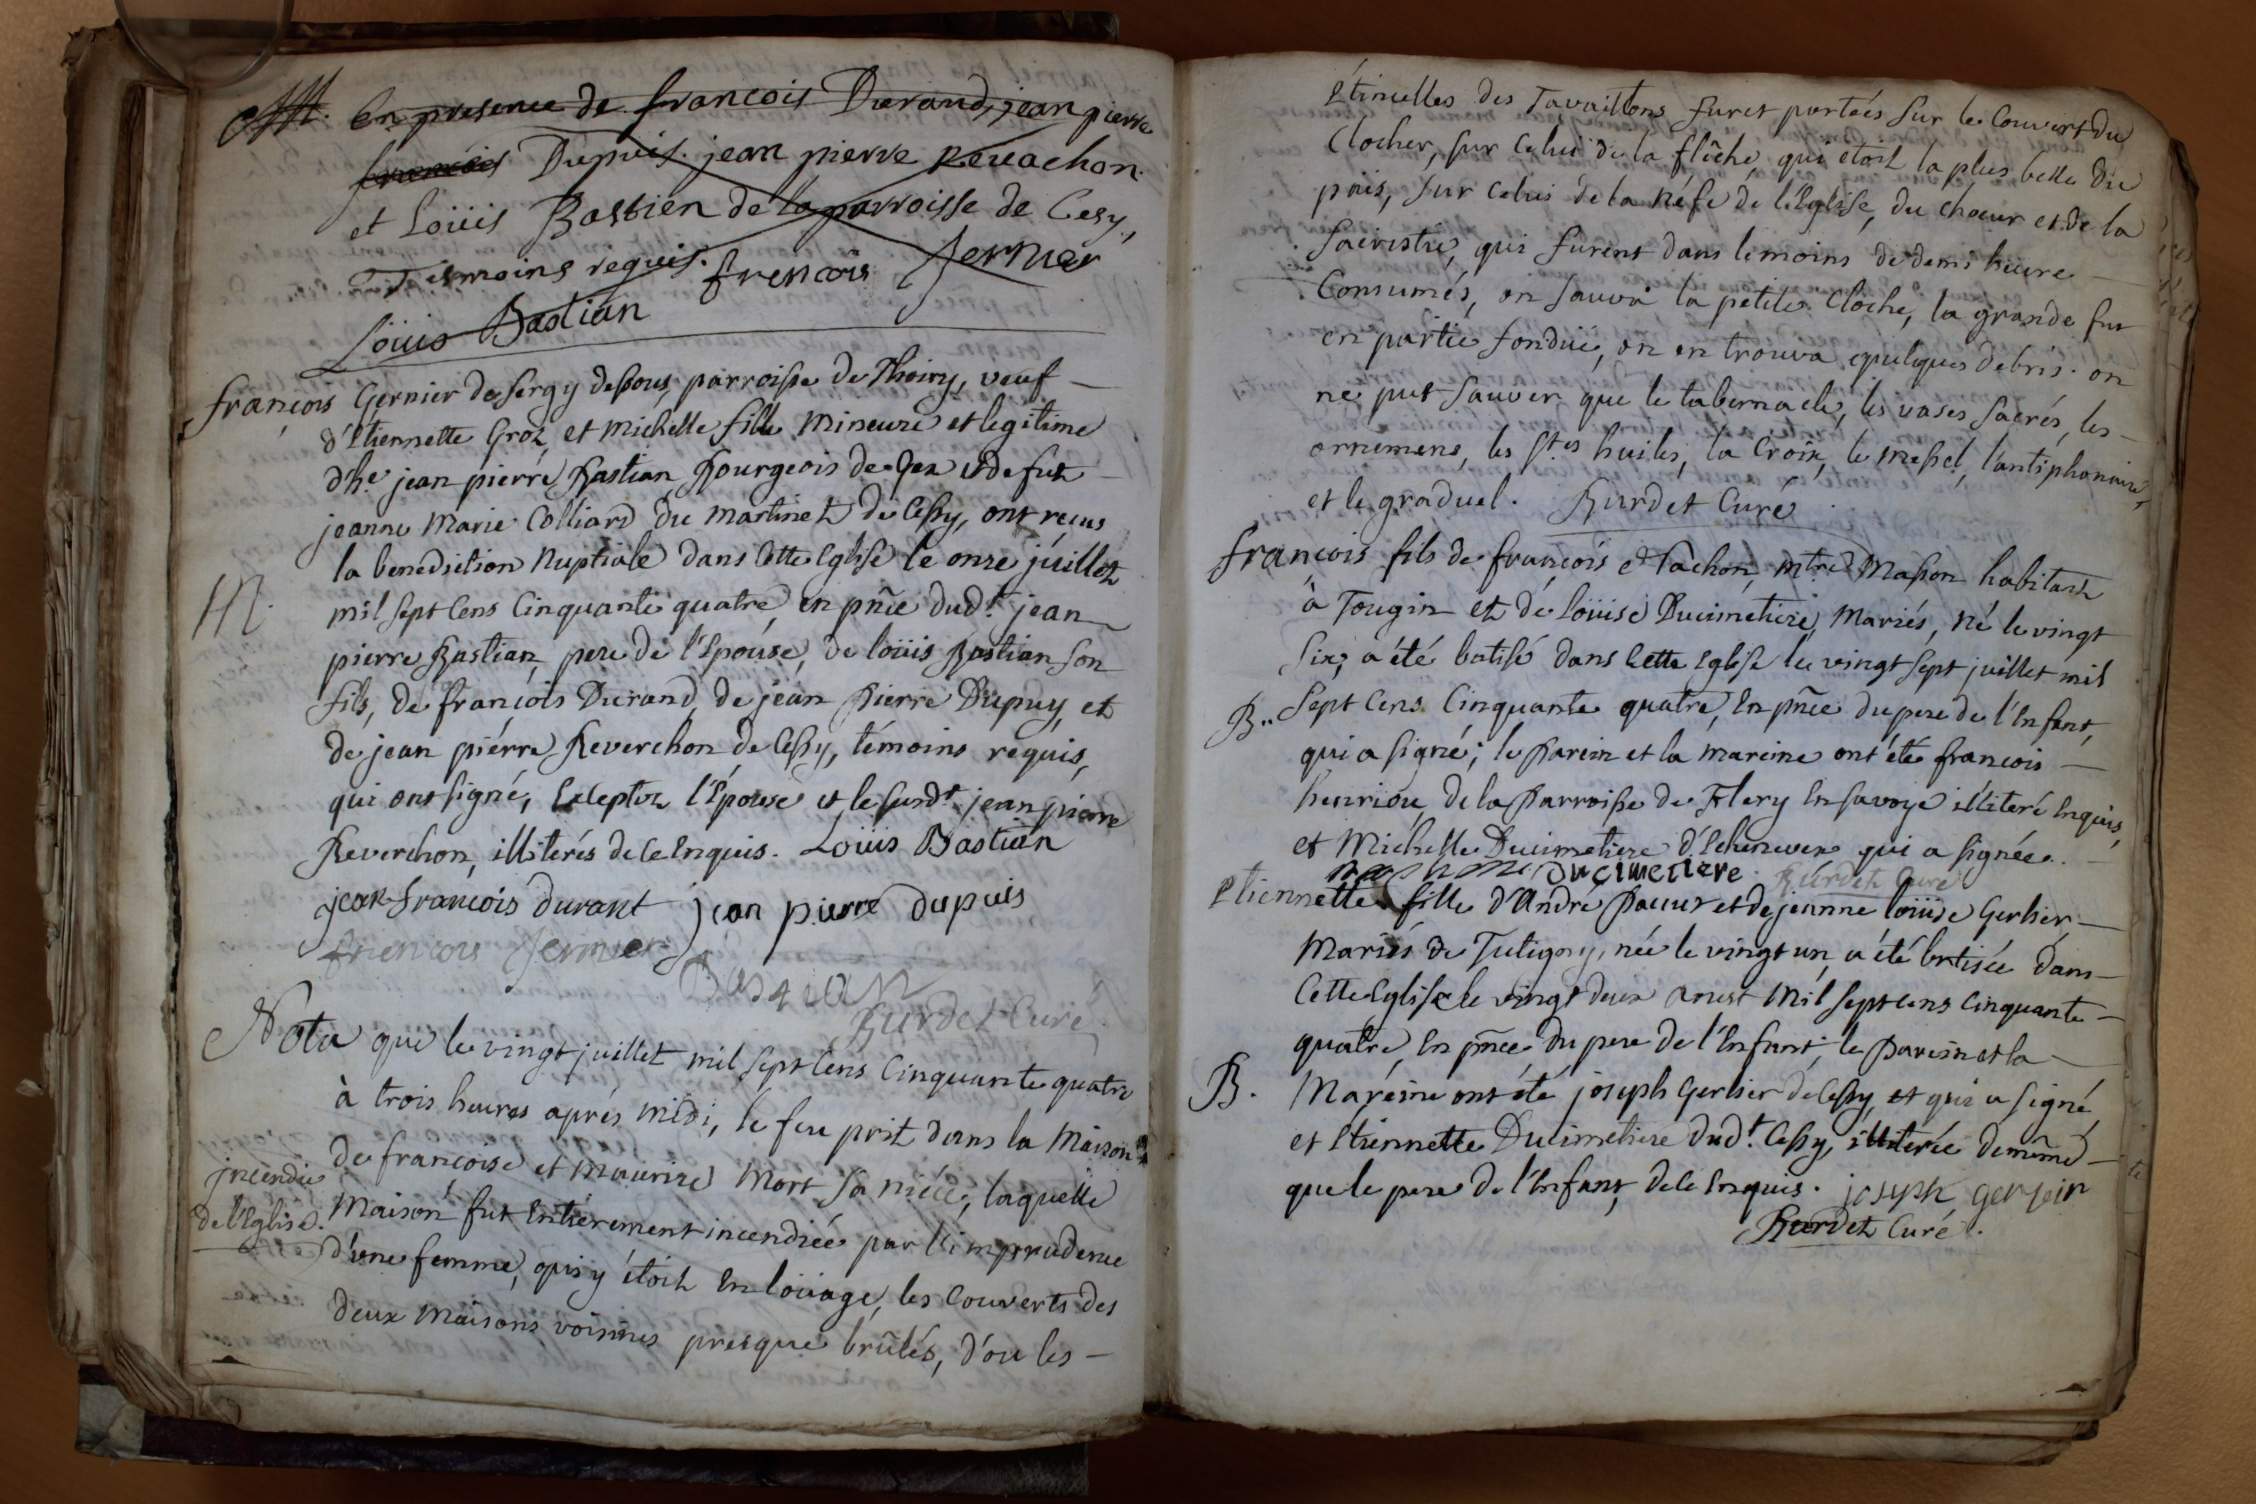 En presence de francois Durand, jean pierre
francois Dupuis. jean pierre Revachon
et Loüis Bastien de la parroisse de Cesy,
Tesmoins requis. francois Jernier
Loüis Bastian
françois Gernier de Sergy dessous, parroisse de Thoiry, veuf
d'Etiennette Groz, et michelle fille Mineure et legitime
d'he. jean pierre Bastian Bourgeois de Gex et defut
jeanne Marie Colliard du martinet de Cessy, ont reçus
la benediction Nuptiale dans Cette Eglise le onze juillet
M. mil sept Cens Cinquante quatre, en pñce dud.t jean
pierre Bastian, pere de l'Epouse, de loüis Bastian son
fils, de françois Durand, de jean Pierre Dupuy, et
de jean pierre Reverchon de Cessy, témoins requis,
qui ont signé, Excepter l'Epouse et le susd.t jean pierre
Reverchon, illiterés de ce Enquis. Loüis Bastian
jean-francois durant jean pierre dupuis
frencois Jernier
Bastian
Burdet Curé
Nota que le vingt juillet mil sept Cens Cinquante quatre
à trois heures aprés midi, le feu prit dans la Maison
de françoise et maurise Mort sa niéce, laquelle
incendie
de l'Eglise.
Maison fut Entiérement incendiée par l'imprudence
d'une femme, qui y étoit En loüage, les Couverts des
deux Maisons voisines presque brûlés, d'ou les
Etincelles des Tavaillons furet portées sur le Couvert du
Clocher, sur Celui de la flêche, qui étoit la plus belle du
païs, sur Celui de la Néfe de l'Eglise, du choeur et de la
Sacristie, qui furent dans le moins de demi heure
Consumés, on sauva la petite Cloche, la grande fut
en partie fondüe, on en trouva quelques debris. on
ne put sauver que le tabernacle, les vases sacrés, les
ornemens, les S.tes huiles, la Croix, le messel, l'antiphonaire,
et le graduel. Burdet Curé
François fils de françois Tachon, mtre Masson habitant
à Tougin et de Loüise Ducimetiere, Mariés, Né le vingt
six, a été batisé dans Cette Eglise le vingt sept juillet mil
B. Sept Cens Cinquante quatre, En pñce du pere de l'Enfant,
qui a signé; le Parein et la mareine ont été francois
henriou, de la Parroisse de Flery En savoye illiteré Enquis,
et Michelle Ducimetiere d'Echenevex qui a signée.
Ducimetiere. Burdet Curé
Etiennette fille d'André Pacut et de jeanne loüise Gerlier,
Mariés de Tutigny, née le vingt un, a été batisée dans
Cette Eglise le vingt deux aoust Mil sept Cens Cinquante
quatre, En pñce du pere de l'Enfant; le Parein et la
B. Mareine ont été joseph Gerlier de Cessy, et qui a signé
et Etiennette Ducimetiere dud.t Cessy, illiterée de même
que le pere de l'Enfant, de ce Enquis. joseph
Burdet Curé.